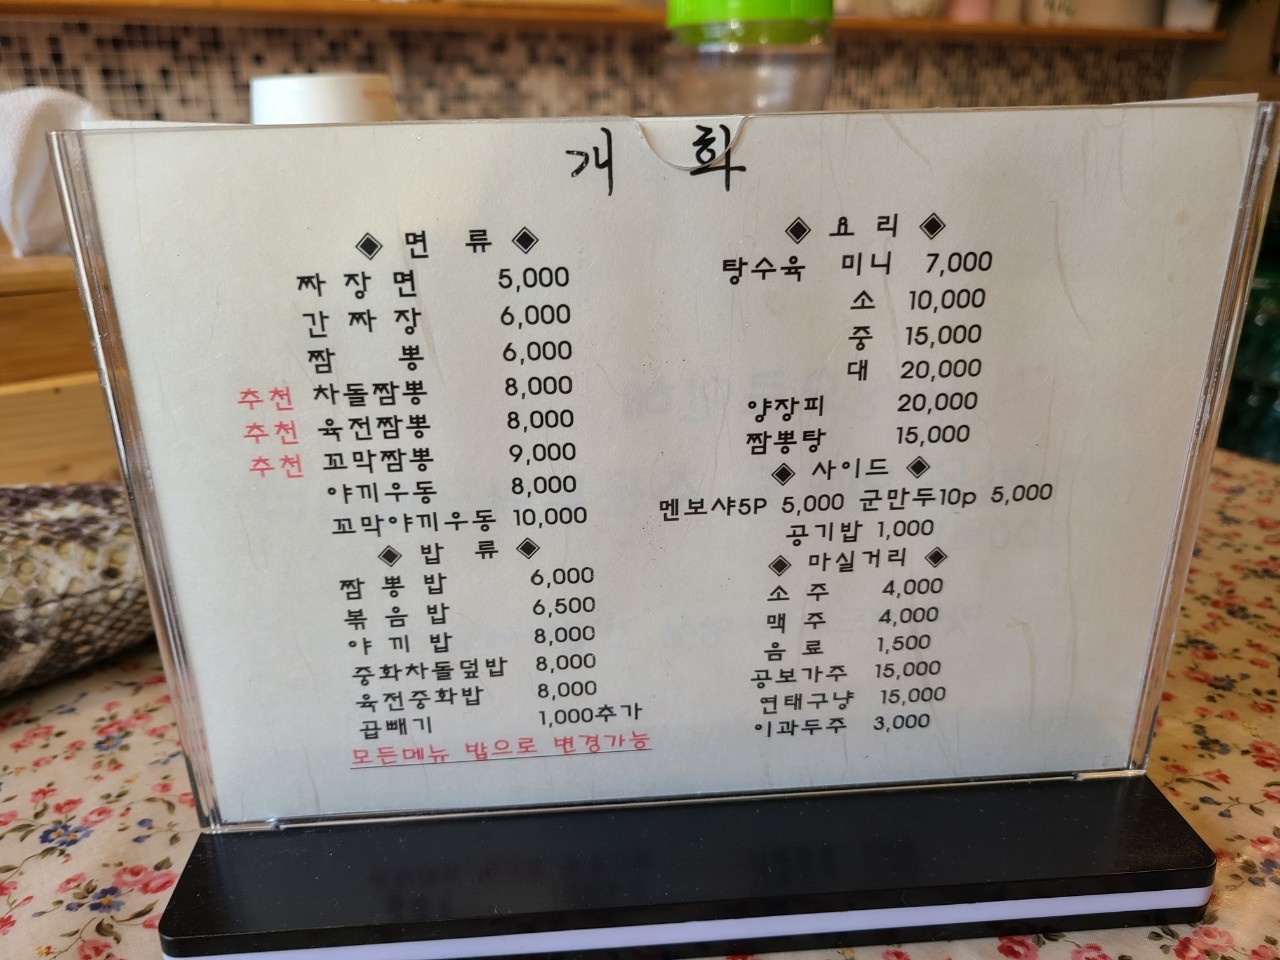 개 화
◈ 면 류 ◈
짜 장 면 5,000
간 짜 장 6,000
짬 뽕 6,000
추천 차돌짬뽕 8,000
추천 육전짬뽕 8,000
추천 꼬막짬뽕 9,000
야끼우동 8,000
꼬막야끼우동 10,000
◈ 밥 류 ◈
짬 뽕 밥 6,000
볶 음 밥 6,500
야 끼 밥 8,000
중화차돌덮밥 8,000
육전중화밥 8,000
곱빼기 1,000추가
모든메뉴 밥으로 변경가능
◈ 요 리 ◈
탕수육 미니 7,000
소 10,000
중 15,000
대 20,000
양장피 20,000
짬뽕탕 15,000
◈ 사이드 ◈
멘보샤5P 5,000 군만두10p 5,000
공기밥 1,000
◈ 마실거리 ◈
소 주 4,000
맥 주 4,000
음 료 1,500
공보가주 15,000
연태구냥 15,000
이과두주 3,000